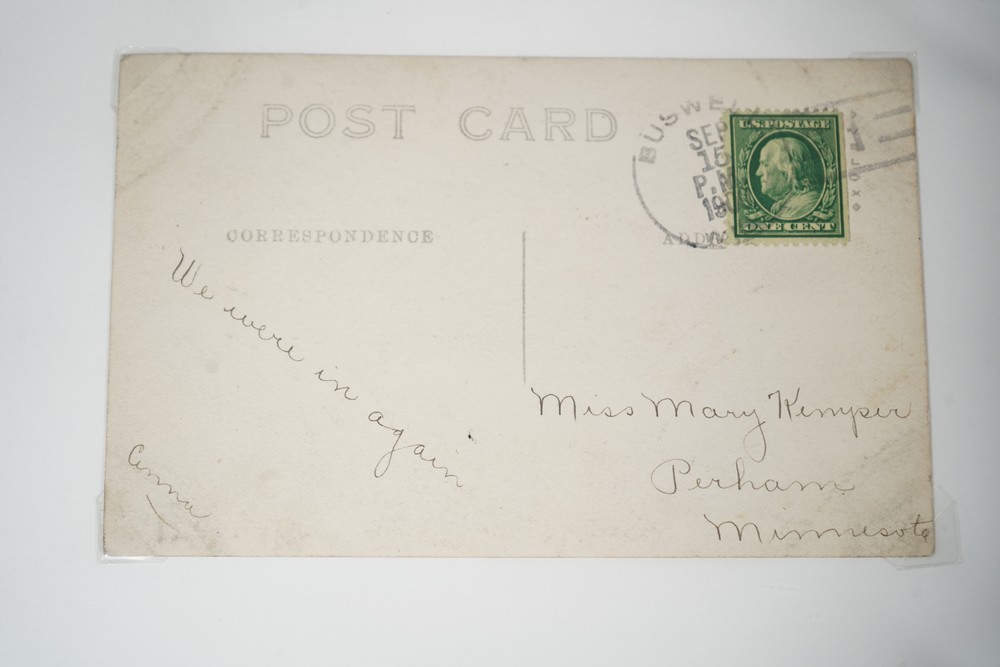 POST CARD
BUSWE
SEP
15
P.M
19
W
U.S. POSTAGE
ONE CENT
CORRESPONDENCE
ADD
We were in again
Anna
Miss Mary Kemper
Perham
Minnesota